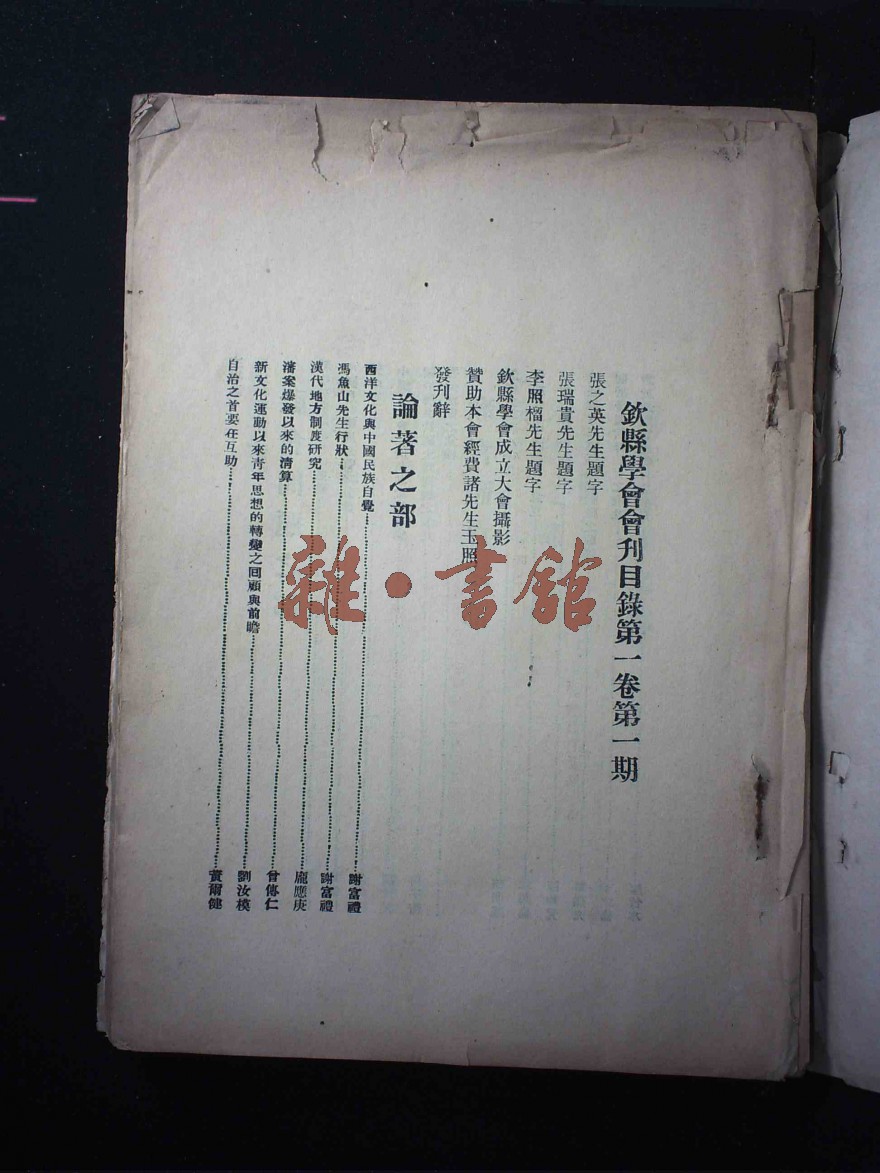 欽縣學會會刊目錄第一卷第一期
張之英先生題字
張瑞貴先生題字
李照榴先生題字
欽縣學會成立大會攝影
贊助本會經費諸先生玉照
發刊辭
論著之部
西洋文化與中國民族自覺……謝富禮
馮魚山先生行狀……謝富禮
漢代地方制度研究……龐應庚
藩案爆發以來的清算……曾傳仁
新文化運動以來青年思想的轉變之回顧與前瞻……劉汝模
自治之首要在互助……黃爾健
雜·書館